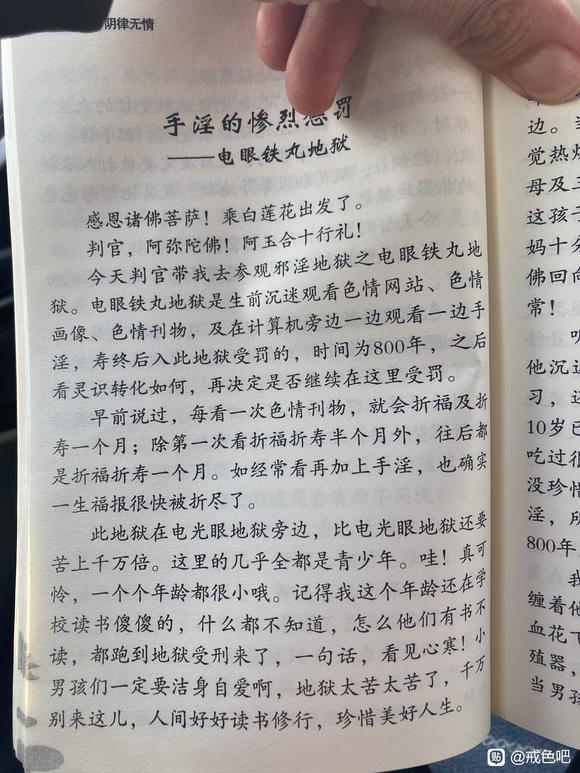 阴律无情
手淫的惨烈惩罚
——电眼铁丸地狱
感恩诸佛菩萨！乘白莲花出发了。
判官，阿弥陀佛！阿玉合十行礼！
今天判官带我去参观邪淫地狱之电眼铁丸地
狱。电眼铁丸地狱是生前沉迷观看色情网站、色情
画像、色情刊物，及在计算机旁边一边观看一边手
淫，寿终后入此地狱受罚的，时间为800年，之后
看灵识转化如何，再决定是否继续在这里受罚。
早前说过，每看一次色情刊物，就会折福及折
寿一个月；除第一次看折福折寿半个月外，往后都
是折福折寿一个月。如经常看再加上手淫，也确实
一生福报很快被折尽了。
此地狱在电光眼地狱旁边，比电光眼地狱还要
苦上千万倍。这里的几乎全都是青少年。哇！真可
怜，一个个年龄都很小哦。记得我这个年龄还在学
校读书傻傻的，什么都不知道，怎么他们有书不
读，都跑到地狱受刑来了，一句话，看见心寒！小
男孩们一定要洁身自爱啊，地狱太苦太苦了，千万
别来这儿，人间好好读书修行，珍惜美好人生。
边。
觉热
母及三
这孩子
妈十分
佛回向
常！
他沉迷
习，
10岁已
吃过很
没珍惜
淫，所
800年
我
缠着他
血花飞
殖器，
当男孩
贴 @戒色吧